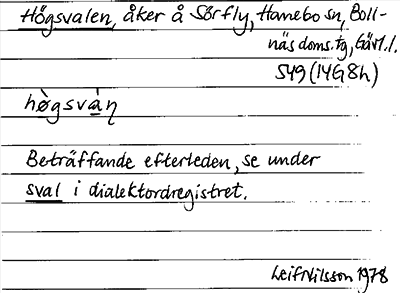 Högsvalen, åker å Sörfly, Hanebo sn, Boll-
näs doms. tg, Gävl. l.
S49 (14G8h)
hò̱gsvà̱ṉ
Beträffande efterleden, se under
sval i dialektordregistret.
Leif Nilsson 1978